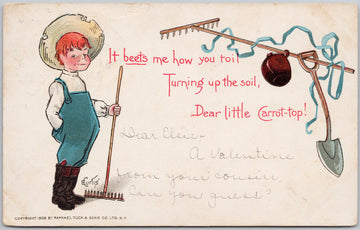 It beets me how you toil
Turning up the soil,
Dear little Carrot-top!
Dear Elsie-
A Valentine
from your cousin
Can you guess?
COPYRIGHT 1908 BY RAPHAEL TUCK & SONS CO. LTD. N.Y.